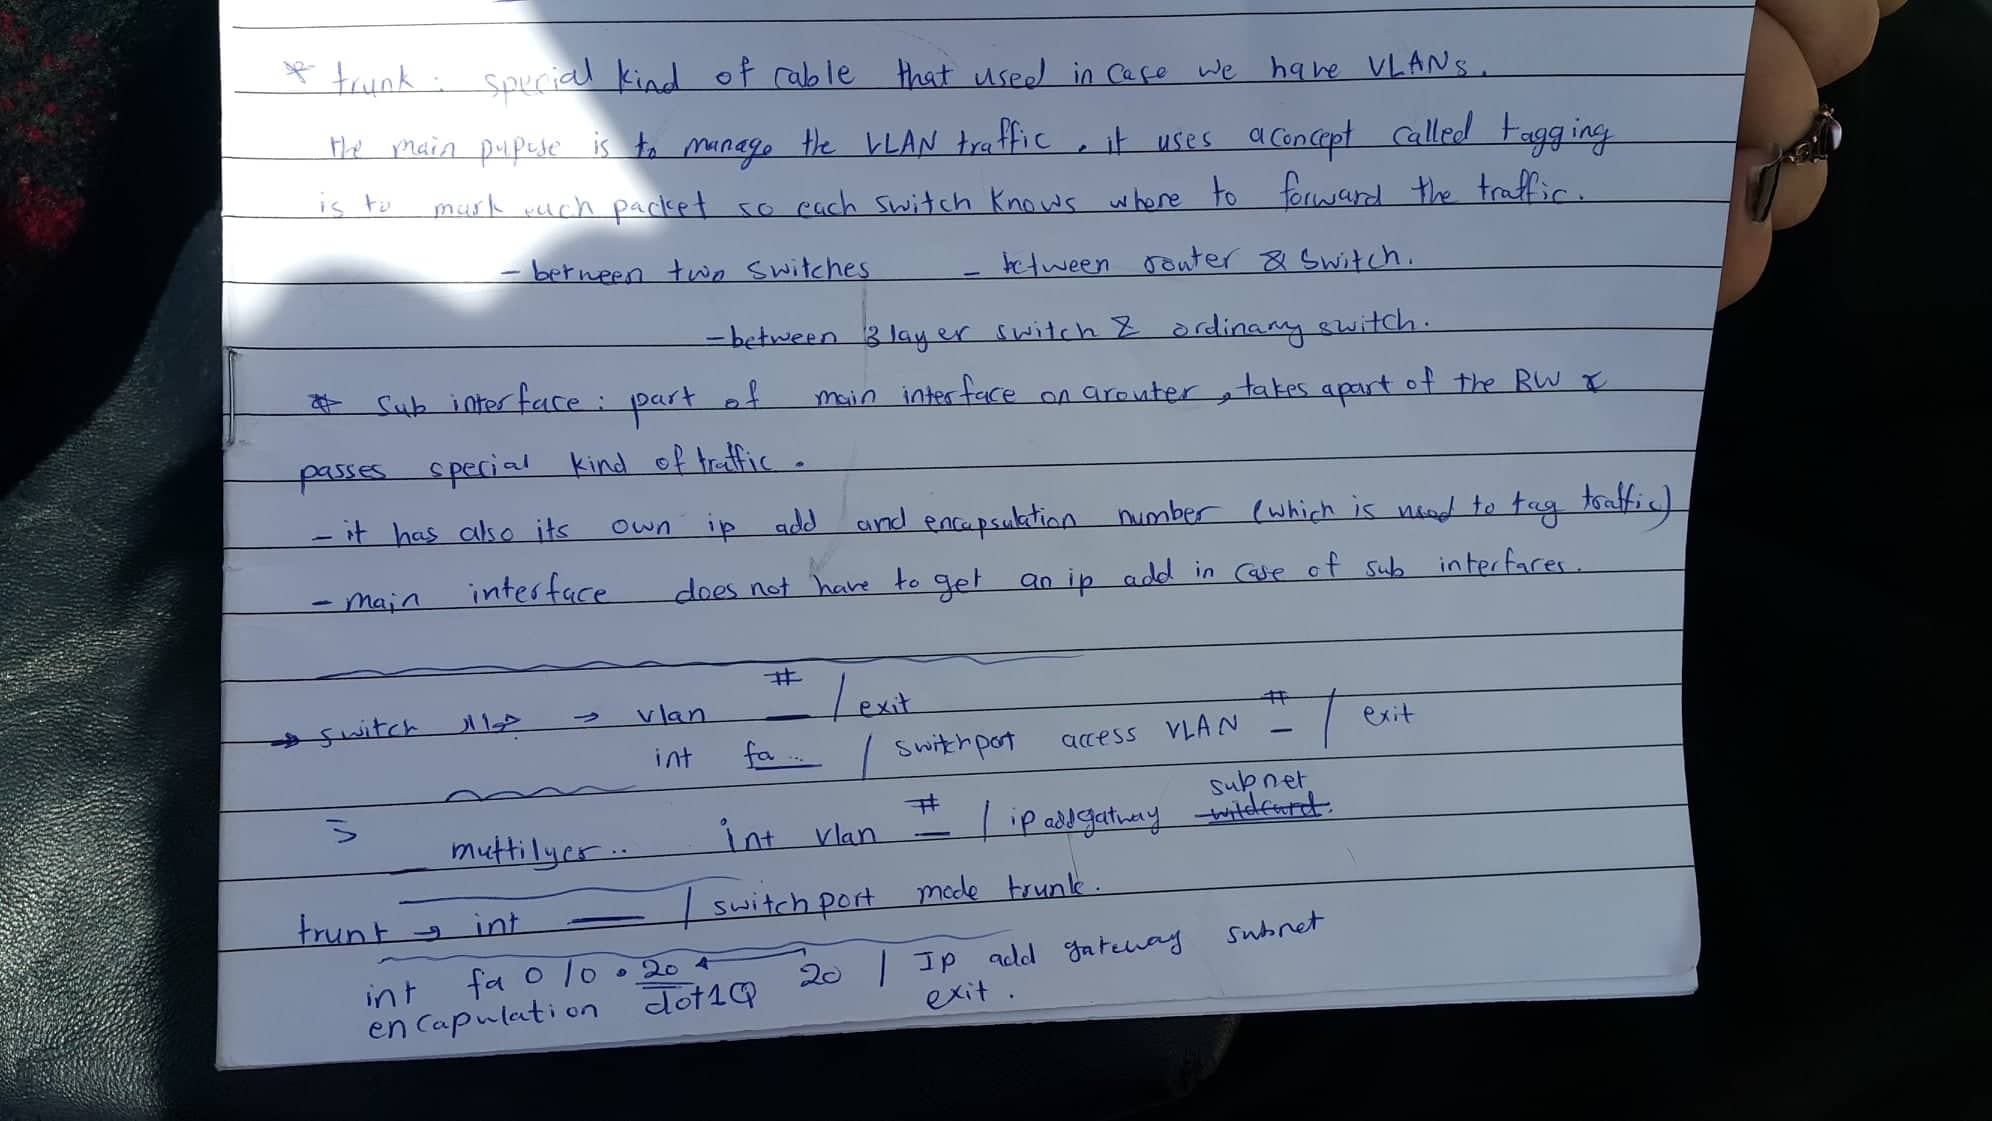 * trunk : special kind of cable that used in case we have VLANs.
the main pupuse is to manage the VLAN traffic . it uses a concept called tagging
is to mark each packet so each switch knows where to forward the traffic.
- between two switches - between router & switch.
- between 3 layer switch & ordinary switch.
* Sub interface : part of main interface on a router , takes apart of the BW &
passes special kind of traffic .
- it has also its own ip add and encapsulation number (which is used to tag traffic)
- main interface does not have to get an ip add in case of sub interfaces.
→ switch → vlan # / exit
int fa... / switchport access VLAN # / exit
subnet
multilyer.. int vlan # / ip add gatway wildcard.
trunk → int / switchport mode trunk.
int fa 0/0 . 20 20 / Ip add gateway subnet
encapulation dot1Q exit .